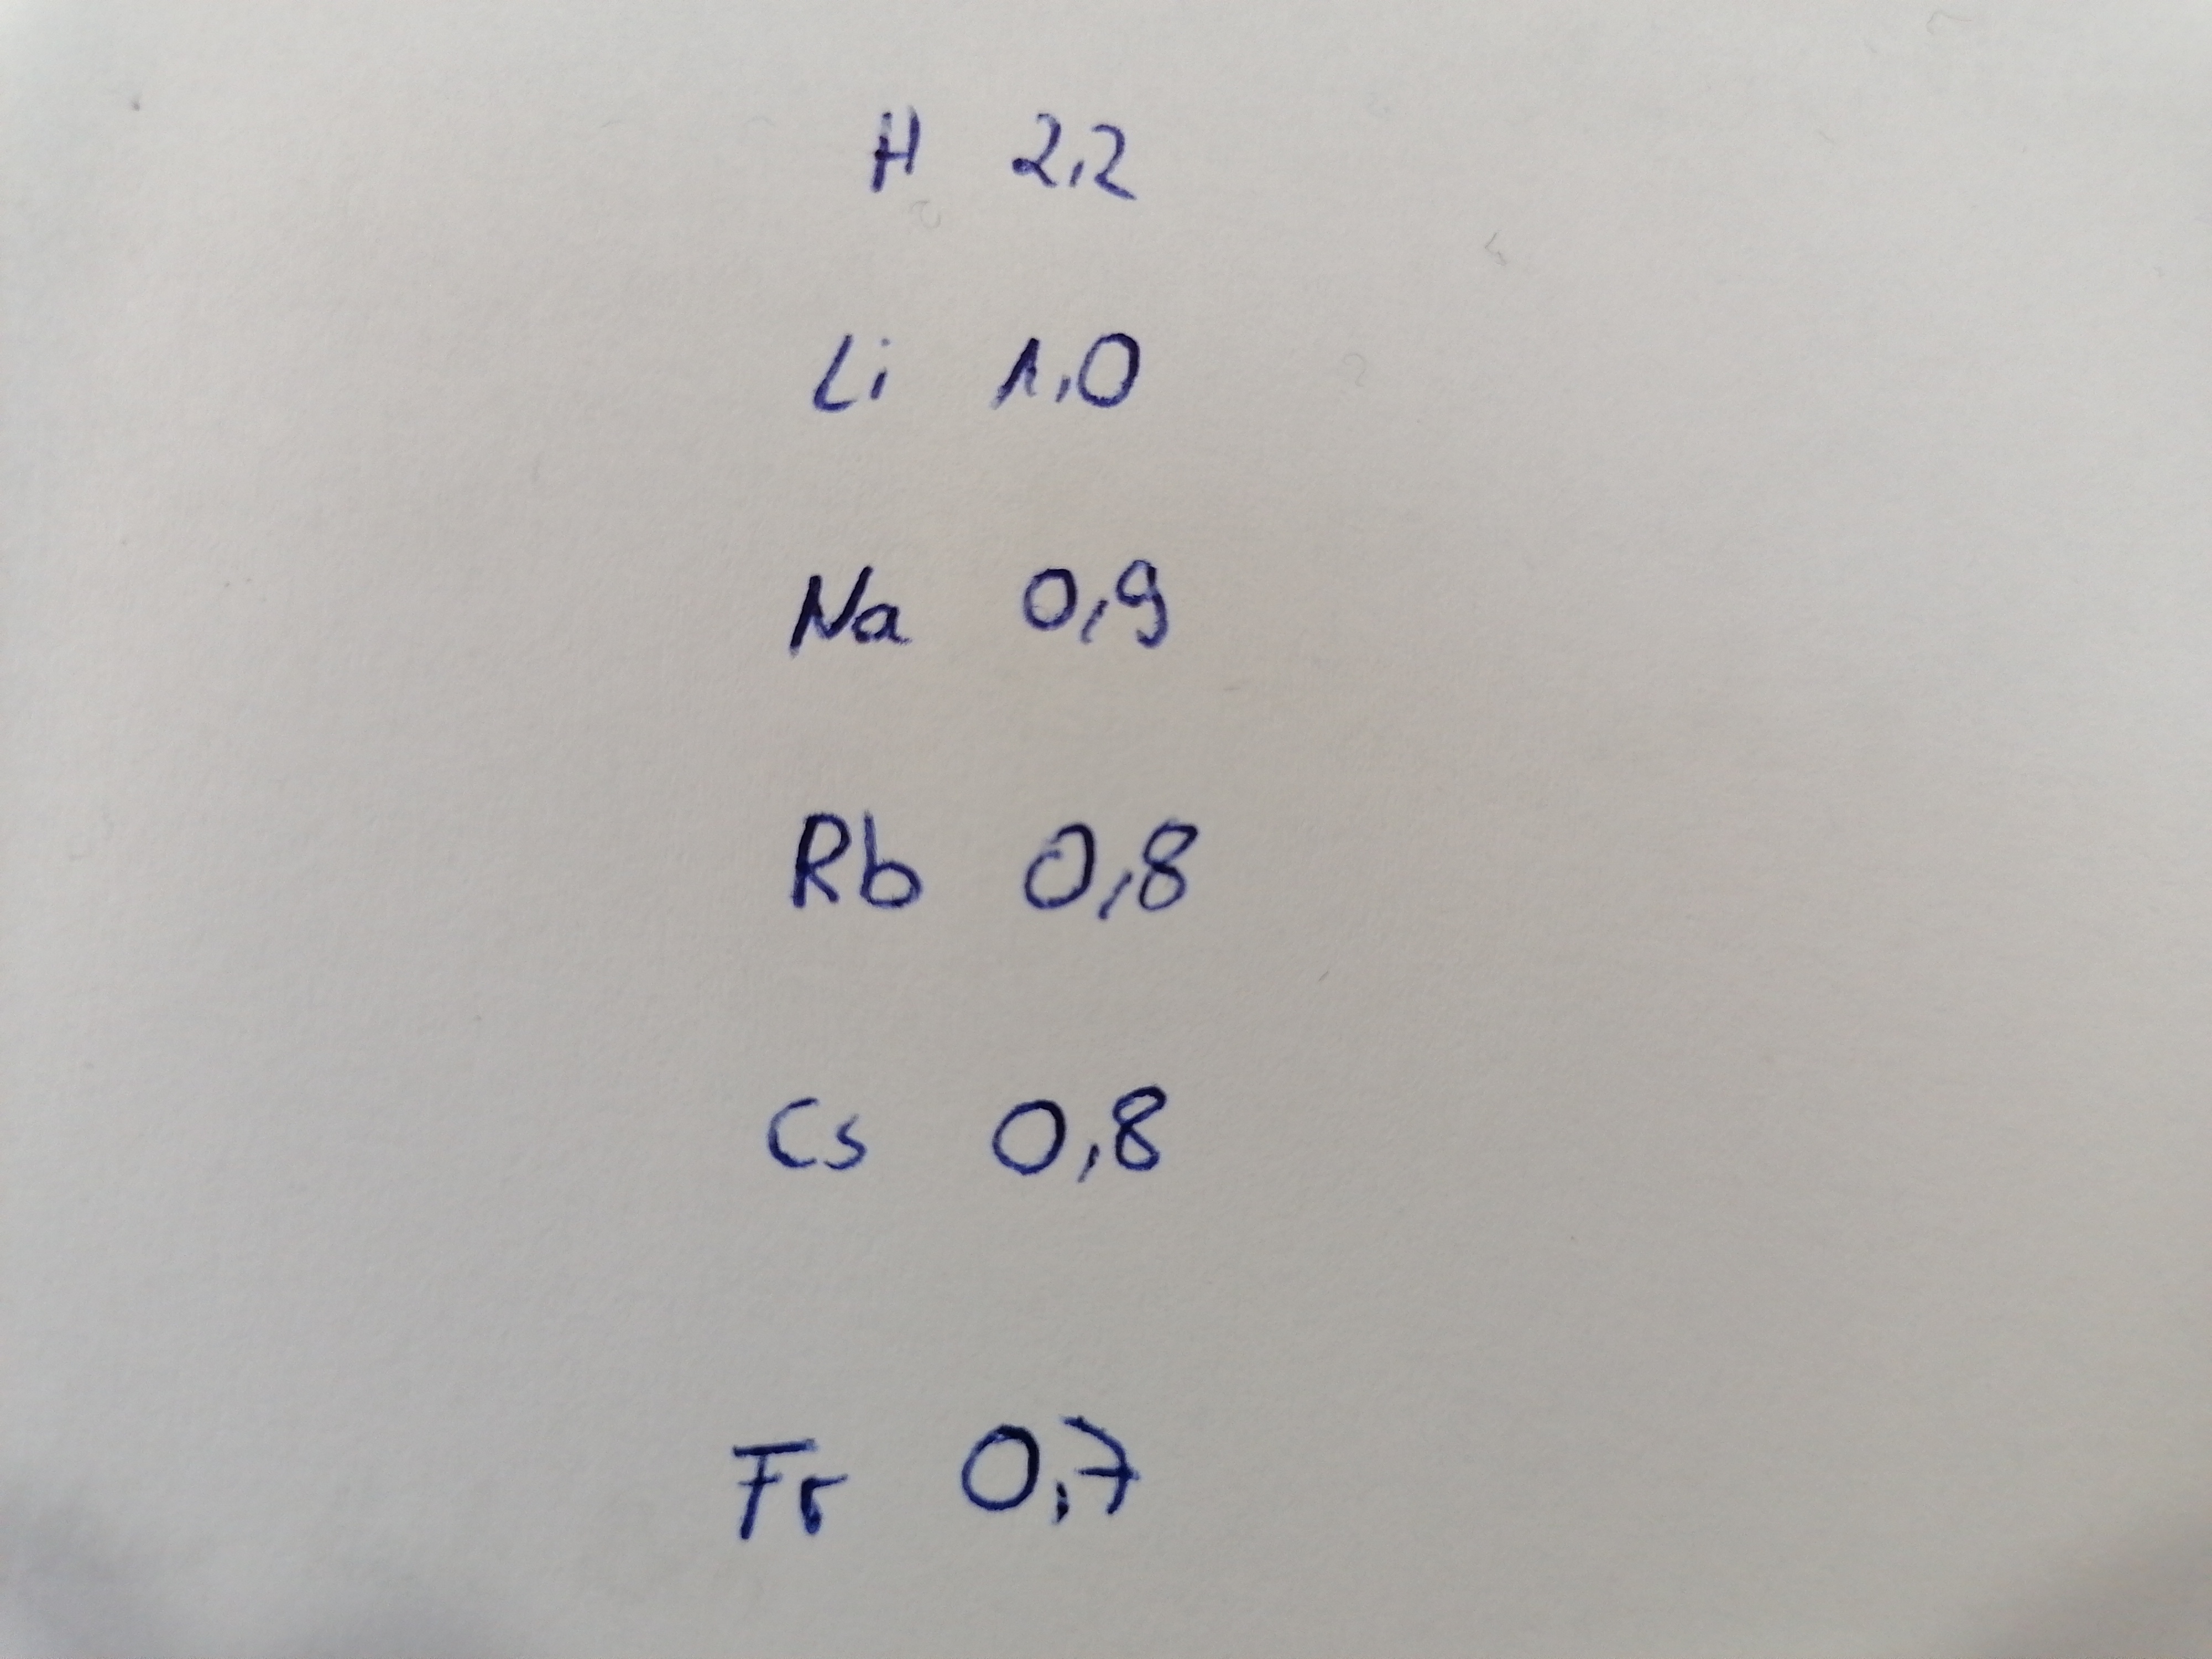 H 2,2
Li 1,0
Na 0,9
Rb 0,8
Cs 0,8
Fr 0,7